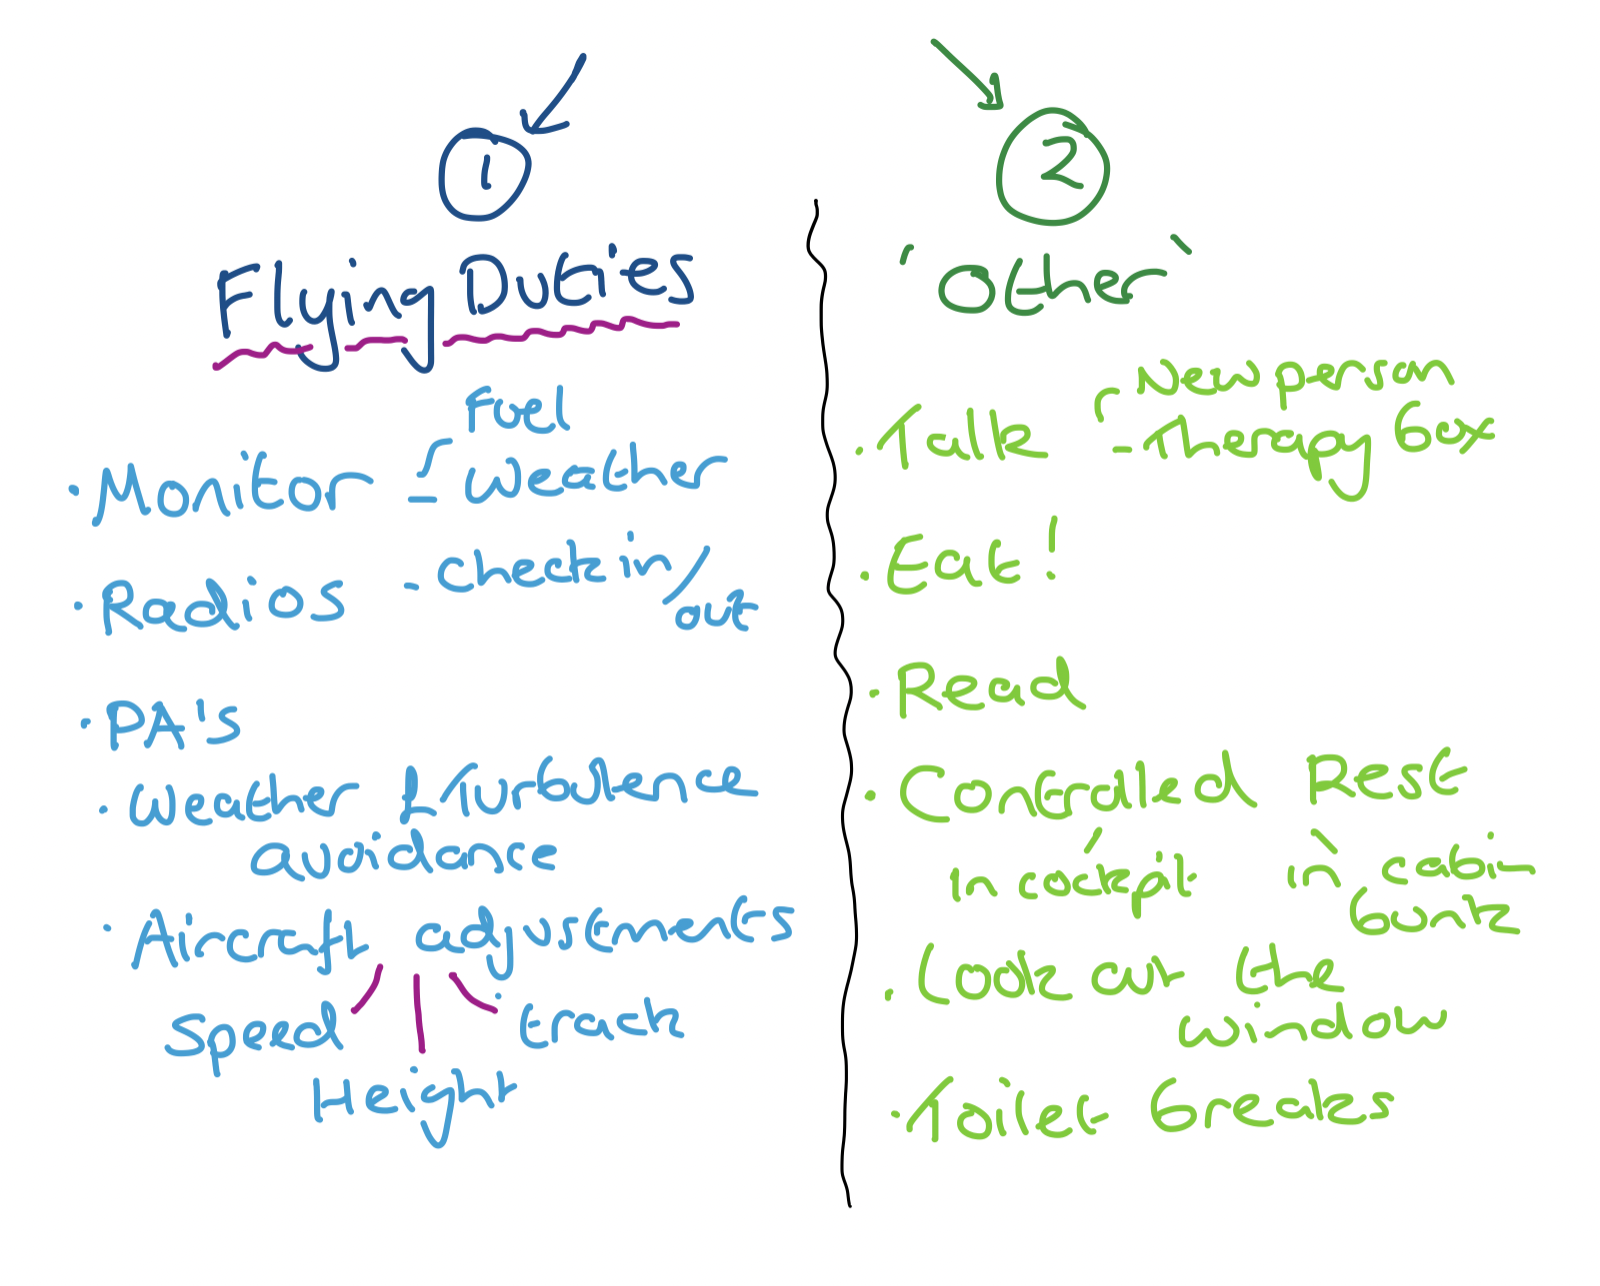 1
Flying Duties
· Monitor - Fuel
- Weather
· Radios - Check in/
out
· PA's
· Weather & Turbulence
avoidance
· Aircraft adjustments
Speed
Height
track
2
'Other'
· Talk - New person
- Therapy box
· Eat!
· Read
· Controlled Rest
in cockpit
in cabin
bunk
· Look out the
window
· Toilet breaks